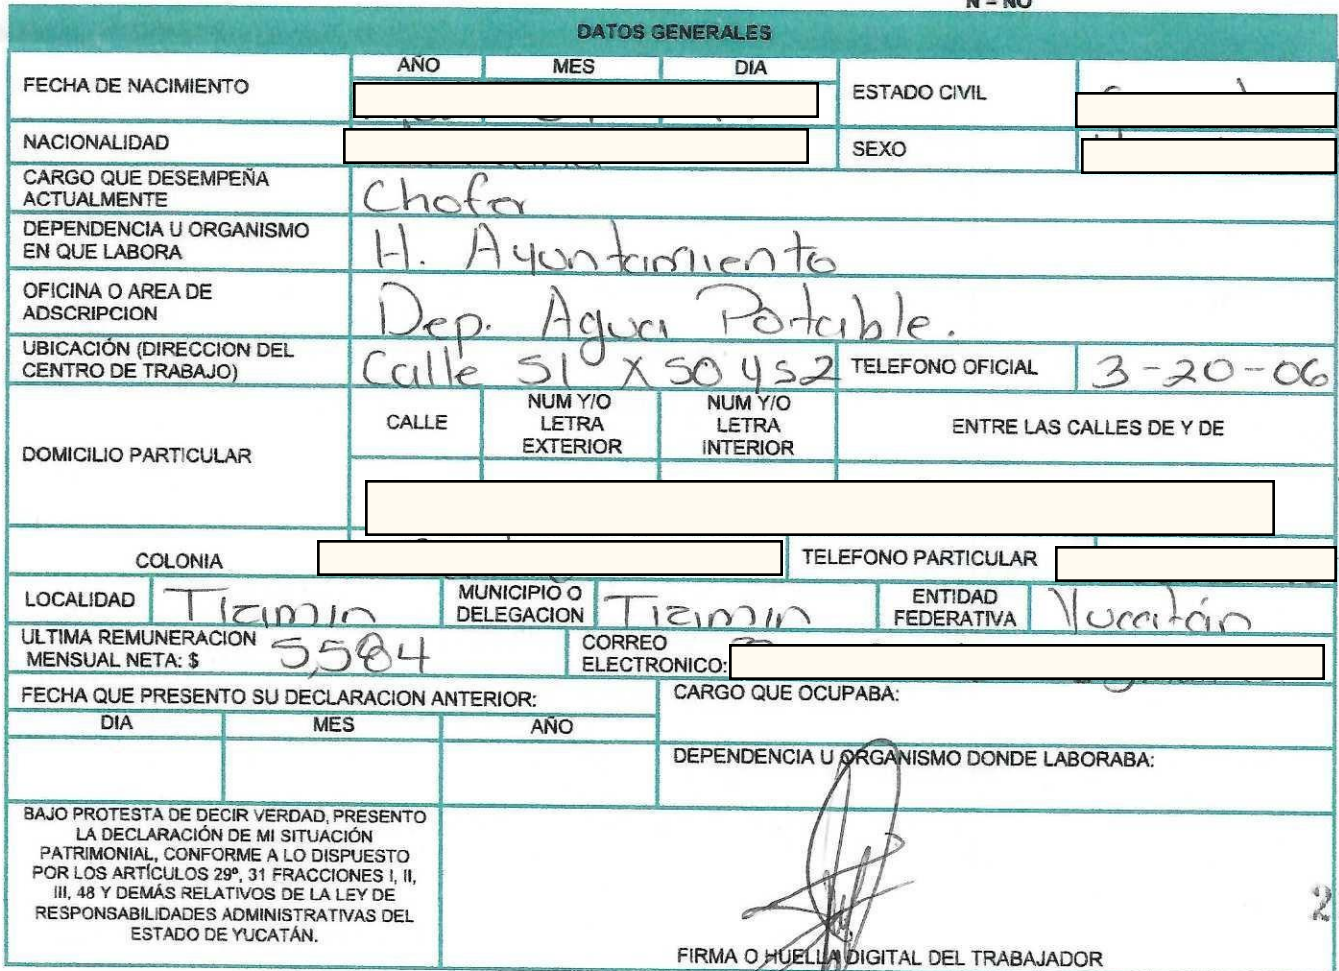 N = NO
DATOS GENERALES
FECHA DE NACIMIENTO
AÑO MES DIA
ESTADO CIVIL
NACIONALIDAD
SEXO
CARGO QUE DESEMPEÑA
ACTUALMENTE
Chofer
DEPENDENCIA U ORGANISMO
EN QUE LABORA
H. Ayuntamiento
OFICINA O AREA DE
ADSCRIPCION
Dep. Agua Potable.
UBICACIÓN (DIRECCION DEL
CENTRO DE TRABAJO)
Calle 51 X 50 y 52
TELEFONO OFICIAL
3-20-06
DOMICILIO PARTICULAR
CALLE
NUM Y/O
LETRA
EXTERIOR
NUM Y/O
LETRA
INTERIOR
ENTRE LAS CALLES DE Y DE
COLONIA
TELEFONO PARTICULAR
LOCALIDAD
Tizimin
MUNICIPIO O
DELEGACION
Tizimin
ENTIDAD
FEDERATIVA
Yucatán
ULTIMA REMUNERACION
MENSUAL NETA: $
5,584
CORREO
ELECTRONICO:
FECHA QUE PRESENTO SU DECLARACION ANTERIOR:
DIA MES AÑO
CARGO QUE OCUPABA:
DEPENDENCIA U ORGANISMO DONDE LABORABA:
BAJO PROTESTA DE DECIR VERDAD, PRESENTO
LA DECLARACIÓN DE MI SITUACIÓN
PATRIMONIAL, CONFORME A LO DISPUESTO
POR LOS ARTÍCULOS 29º, 31 FRACCIONES I, II,
III, 48 Y DEMÁS RELATIVOS DE LA LEY DE
RESPONSABILIDADES ADMINISTRATIVAS DEL
ESTADO DE YUCATÁN.
2
FIRMA O HUELLA DIGITAL DEL TRABAJADOR